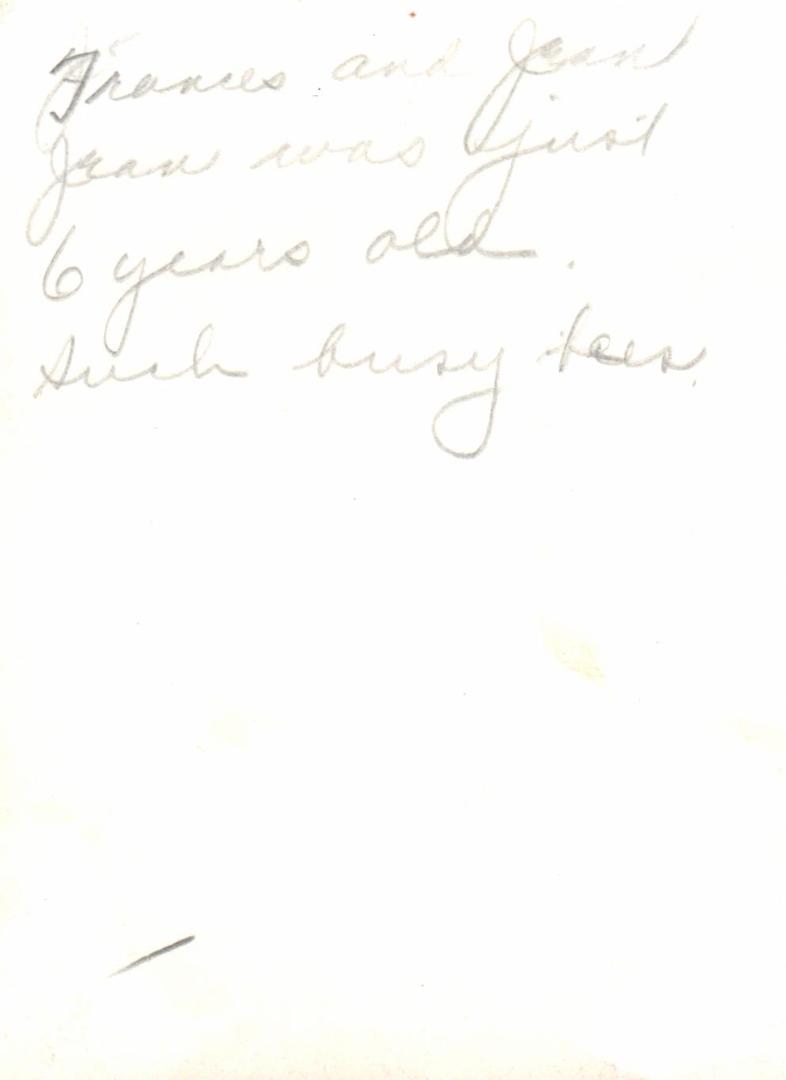 Frances and Jean
Jean was just
6 years old.
Such busy bees.